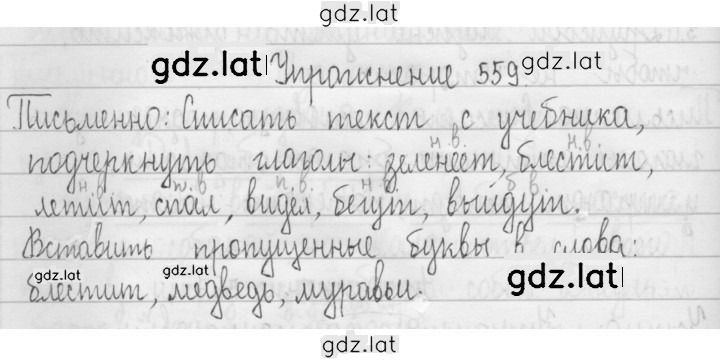 gdz.lat
gdz.lat Упражнение 559. gdz.lat
Письменно: Списать текст с учебника,
н.в. н.в.
подчеркнуть глаголы: зеленеет, блестит,
н.в. п.в. п.в. н.в. б.в.
летит, спал, видел, бегут, выйдут.
Вставить пропущенные буквы в слова:
gdz.lat gdz.lat gdz.lat
блестит, медведь, муравьи.
gdz.lat